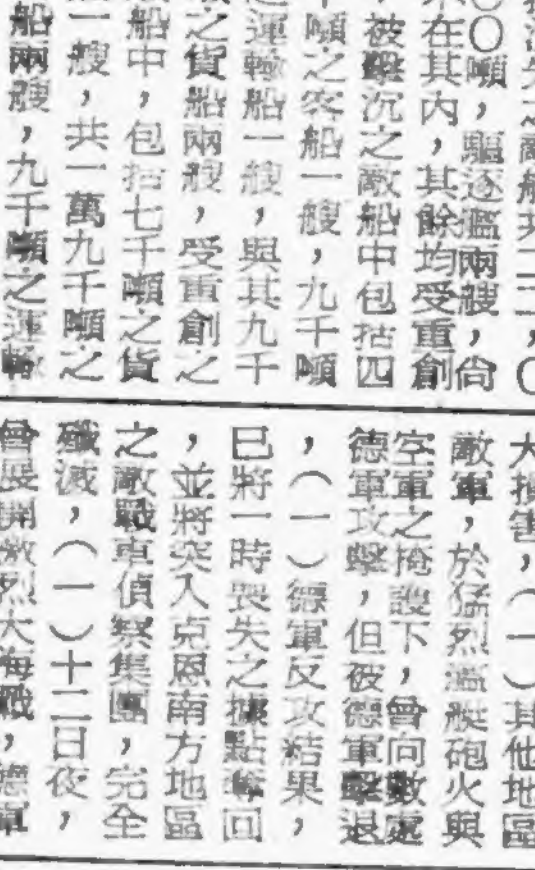 〇〇噸，驅逐艦兩艘，尚
在其內，其餘均受重創
，被擊沉之敵船中包括四
噸之客船一艘，九千噸
運輸船一艘，與其九千
之貨船兩艘，受重創之
船中，包括七千噸之貨
一艘，共一萬九千噸之
船兩艘，九千噸之運輸
大損害，（一）其他地區
敵軍，於猛烈艦艇砲火與
空軍之掩護下，曾向數處
德軍攻擊，但被德軍擊退
，（一）德軍反攻結果，
已將一時喪失之據點奪回
，並將突入克恩南方地區
之敵戰車偵察集團，完全
殲滅，（一）十二日夜，
曾展開激烈大海戰，德軍